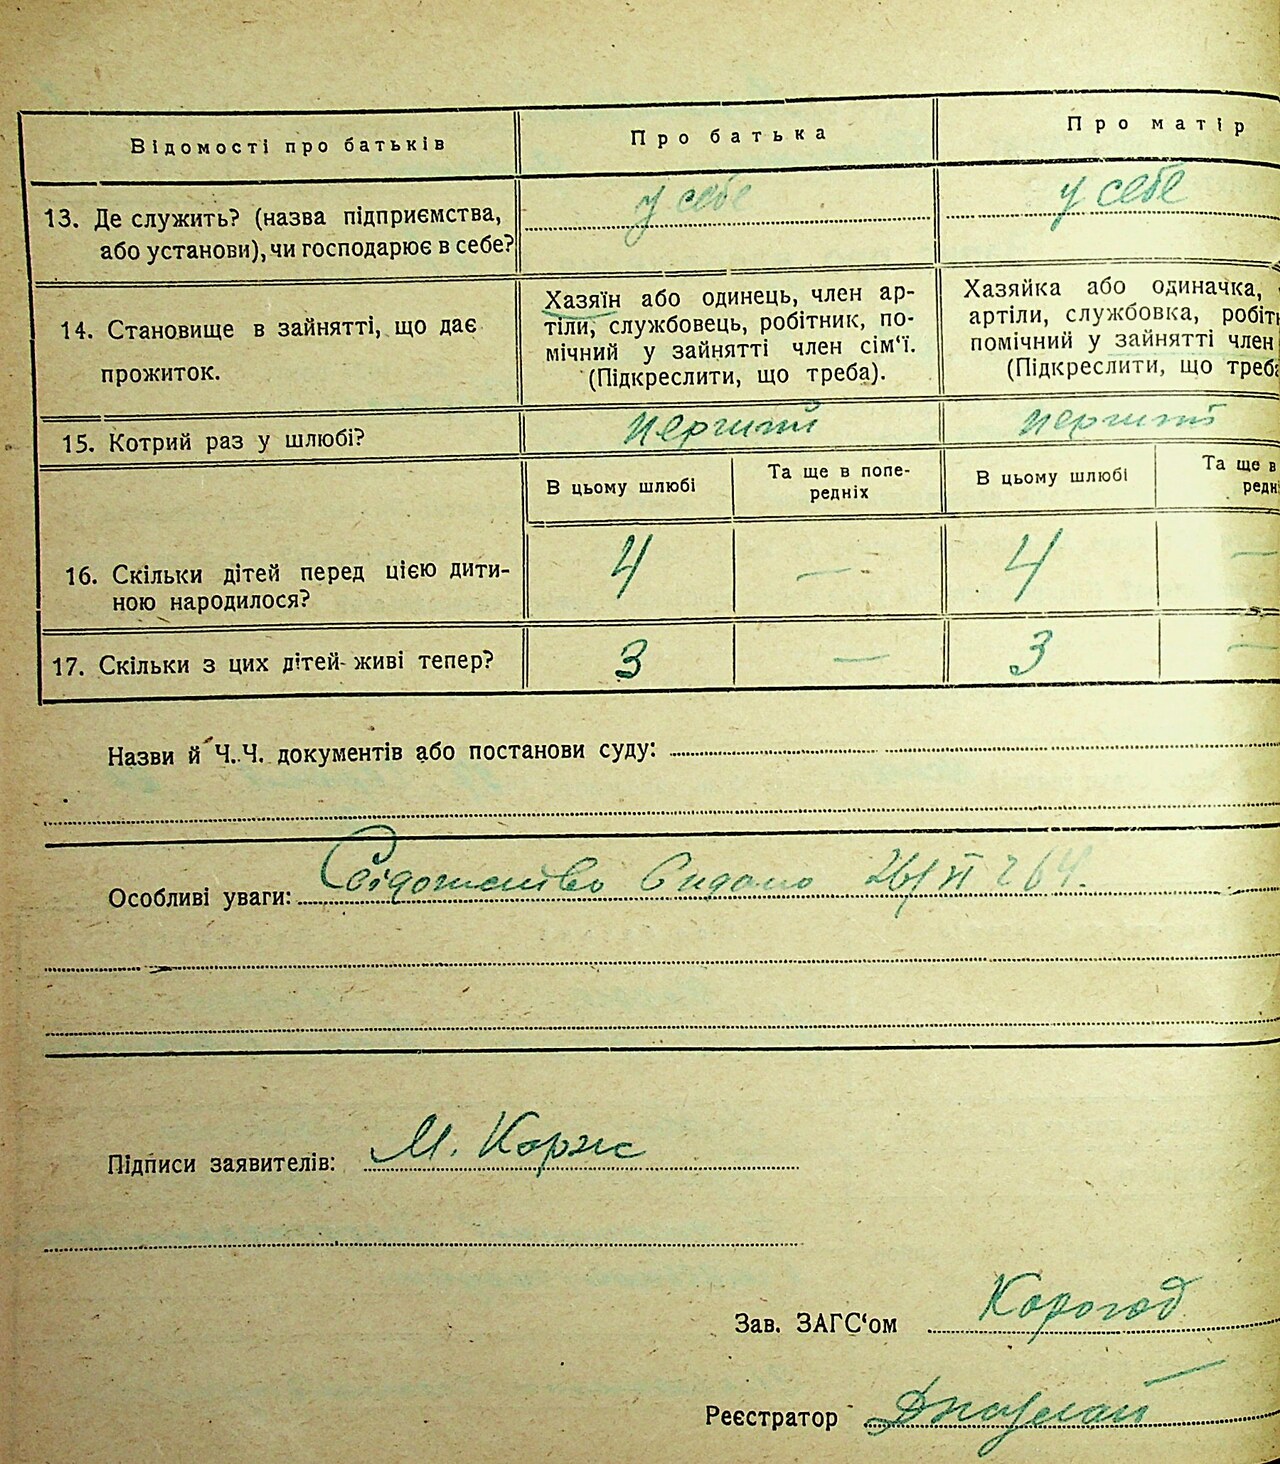 Відомості про батьків
Про батька
Про матір
13. Де служить? (назва підприємства,
або установи), чи господарює в себе?
у себе
у себе
14. Становище в зайнятті, що дає
прожиток.
Хазяїн або одинець, член ар-
тіли, службовець, робітник, по-
мічний у зайнятті член сім‘ї.
(Підкреслити, що треба).
Хазяйка або одиначка,
артіли, службовка, робіт
помічний у зайнятті член
(Підкреслити, що треба
15. Котрий раз у шлюбі?
перший
перший
В цьому шлюбі
Та ще в попе-
редніх
В цьому шлюбі
Та ще в
редн
16. Скільки дітей перед цією дити-
ною народилося?
4
—
4
—
17. Скільки з цих дітей живі тепер?
3
—
3
—
Назви й Ч.Ч. документів або постанови суду:
Особливі уваги: Свідоцтво Видано 26/VI
Підписи заявителів: М. Корж
Зав. ЗАГС‘ом Корогод
Реєстратор